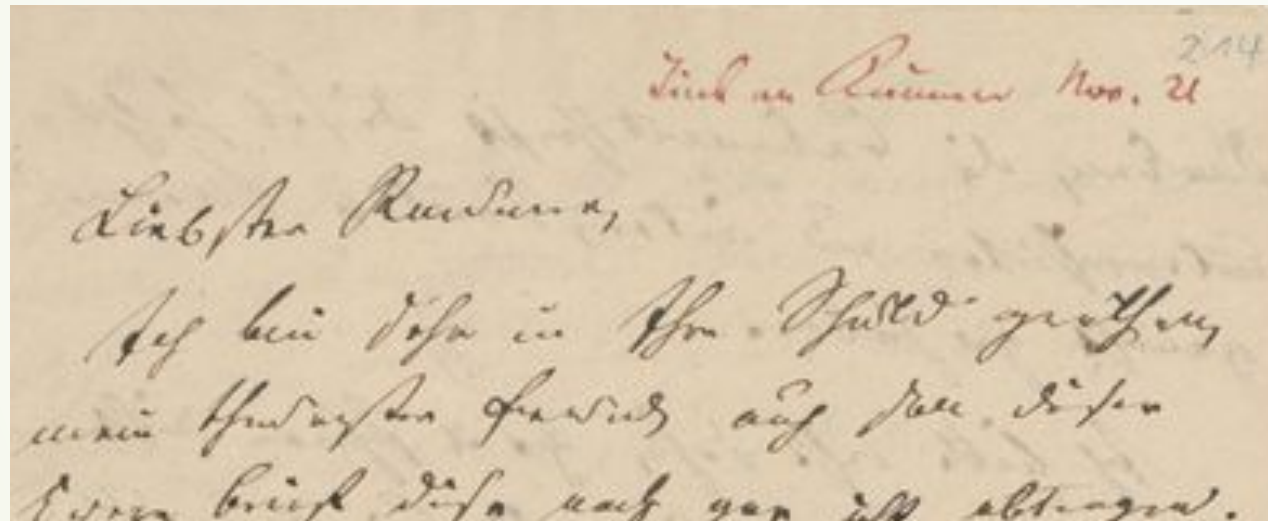 214
Tieck an Raumer Nov. 21
Liebster Raumer,
Ich bin sehr in Ihre Schuld gerathen,
mein theuerster Freund, auch soll dieser
kurze Brief diese noch gar nicht abtragen.